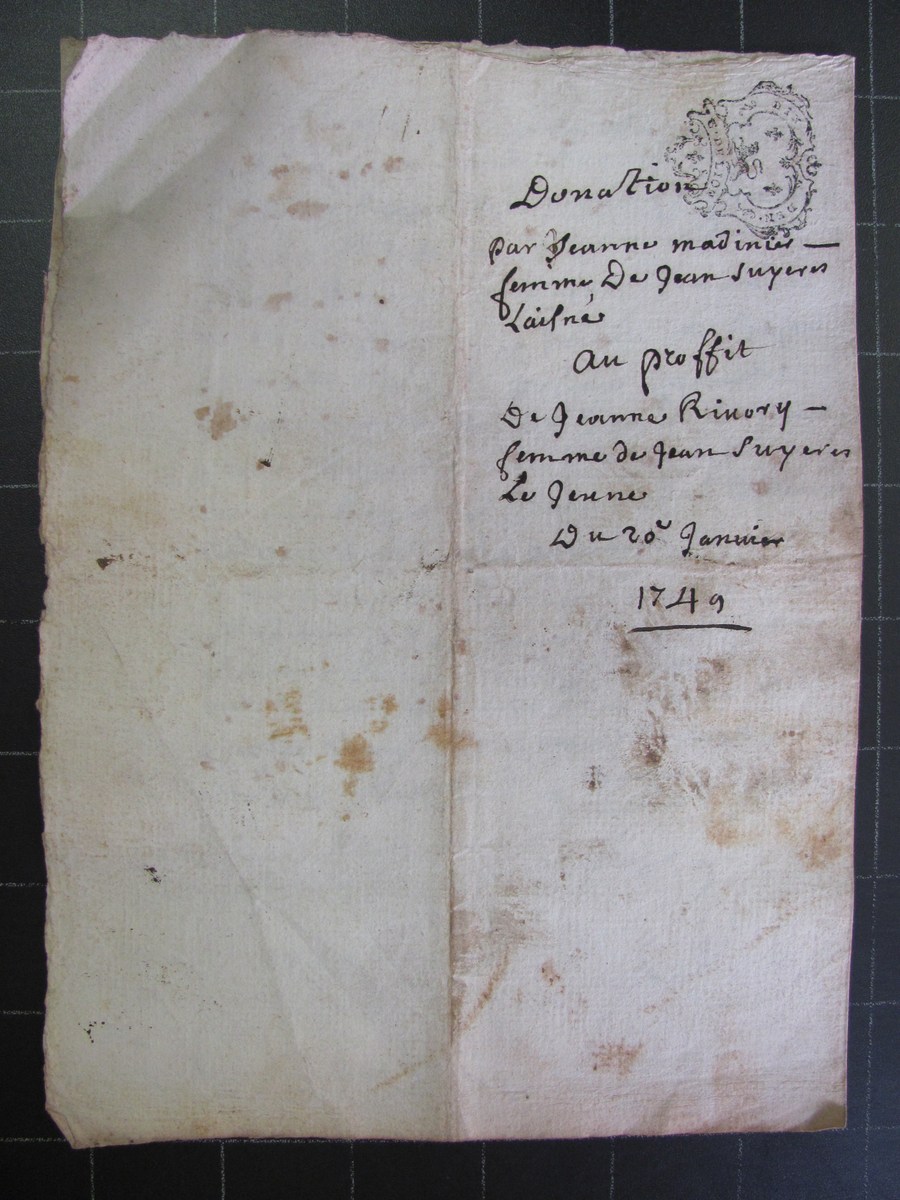 Donation
par Jeanne madinier
femme De Jean Suyeres
Laisné
au proffit
De Jeanne Rivory
femme de Jean Suyeres
Le Jeune
Du 20e Janvier
1749